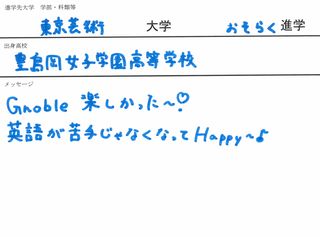 進学先大学 学部・科類等
東京芸術 大学 おそらく 進学
出身高校
豊島岡女子学園高等学校
メッセージ
Gnoble 楽しかった〜♡
英語が苦手じゃなくなってHappy〜♪